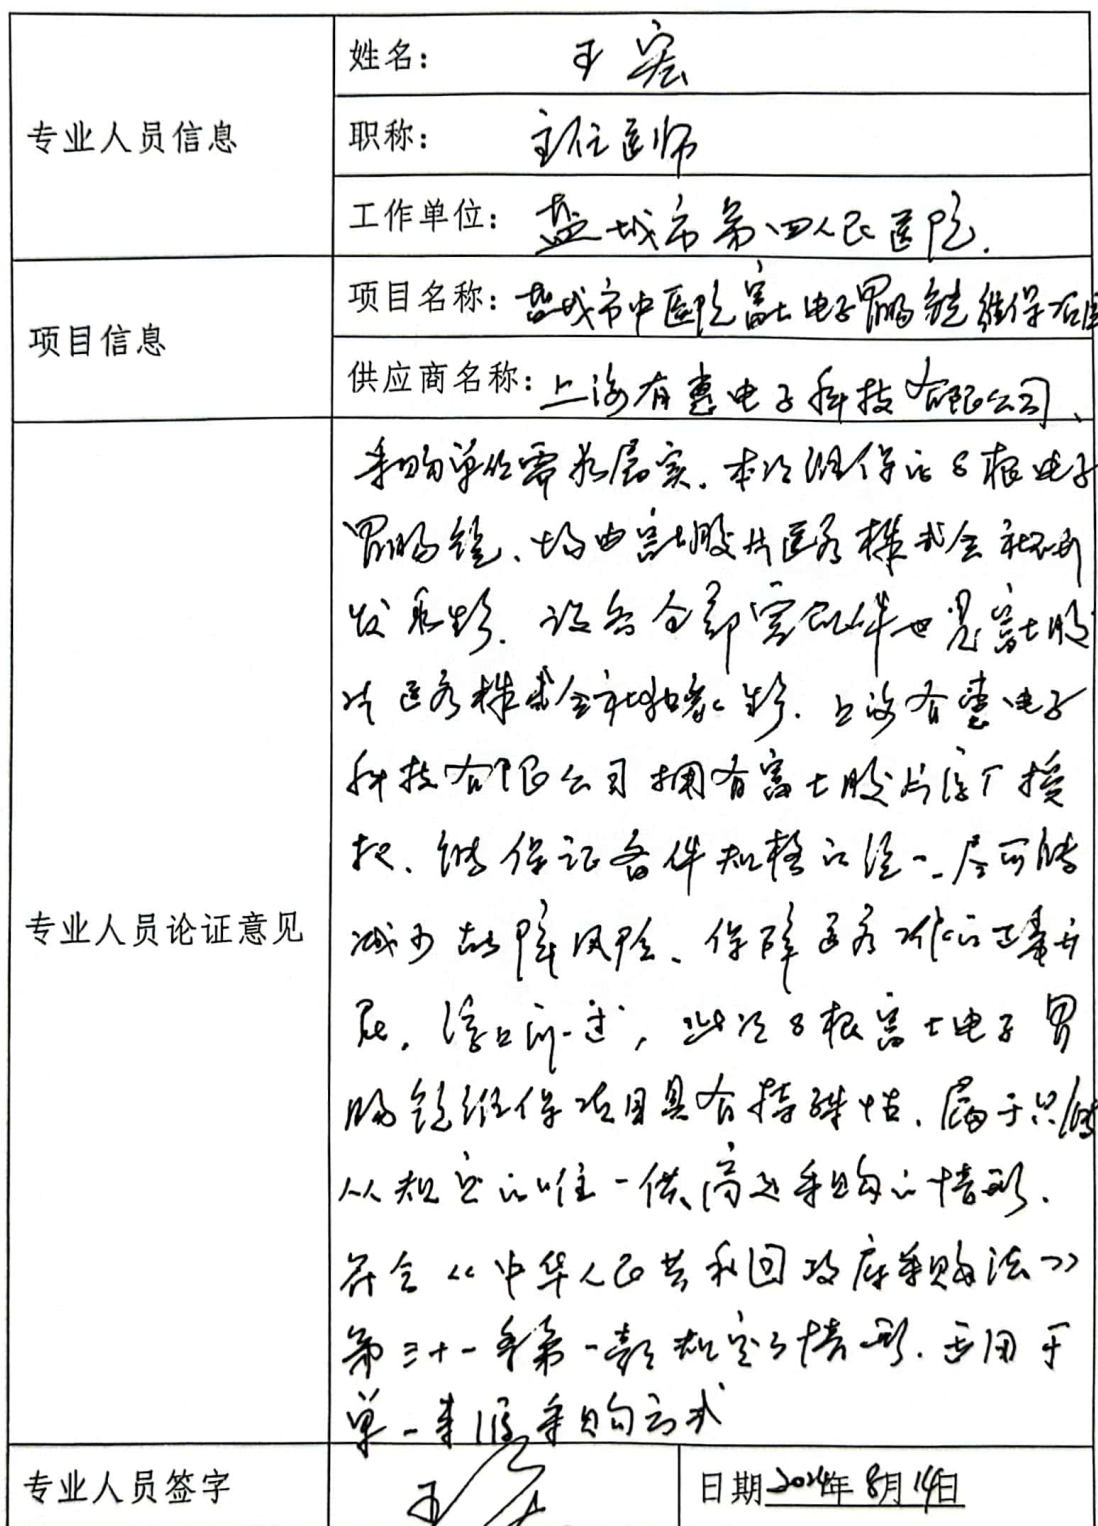 专业人员信息
姓名: 王宏
职称: 主任医师
工作单位: 盐城市第四人民医院.
项目信息
项目名称: 盐城市中医院富士电子胃肠镜维保项目
供应商名称: 上海有惠电子科技有限公司、
专业人员论证意见
采购单位需求属实. 本次维保的8根电子
胃肠镜、均由富士胶片医疗株式会社研
发和生产. 设备全部零配件也是富士胶
片医疗株式会社独家生产. 上海有惠电子
科技有限公司拥有富士胶片原厂授
权、能保证备件规格的统一、尽可能
减少故障风险、保障医疗工作的正常开
展. 综上所述, 此次8根富士电子胃
肠镜维保项目具有特殊性. 属于只能
从规定的唯一供应商处采购的情形.
符合《中华人民共和国政府采购法》
第三十一条第一款规定的情形. 适用于
单一来源采购方式
专业人员签字
王宏
日期 2024年 8月 14日